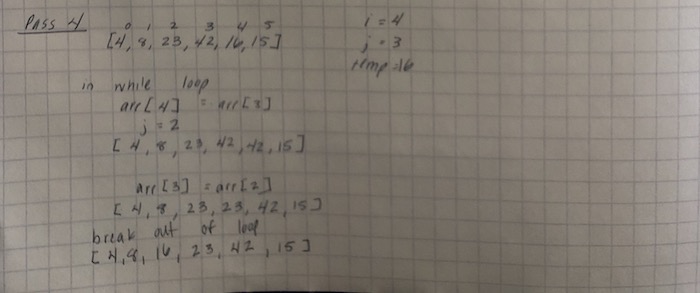 PASS 4
0 1 2 3 4 5
[4, 8, 23, 42, 16, 15]
i = 4
j = 3
temp = 16
in while loop
arr[4] = arr[3]
j = 2
[4, 8, 23, 42, 42, 15]
arr[3] = arr[2]
[4, 8, 23, 23, 42, 15]
break out of loop
[4, 8, 16, 23, 42, 15]